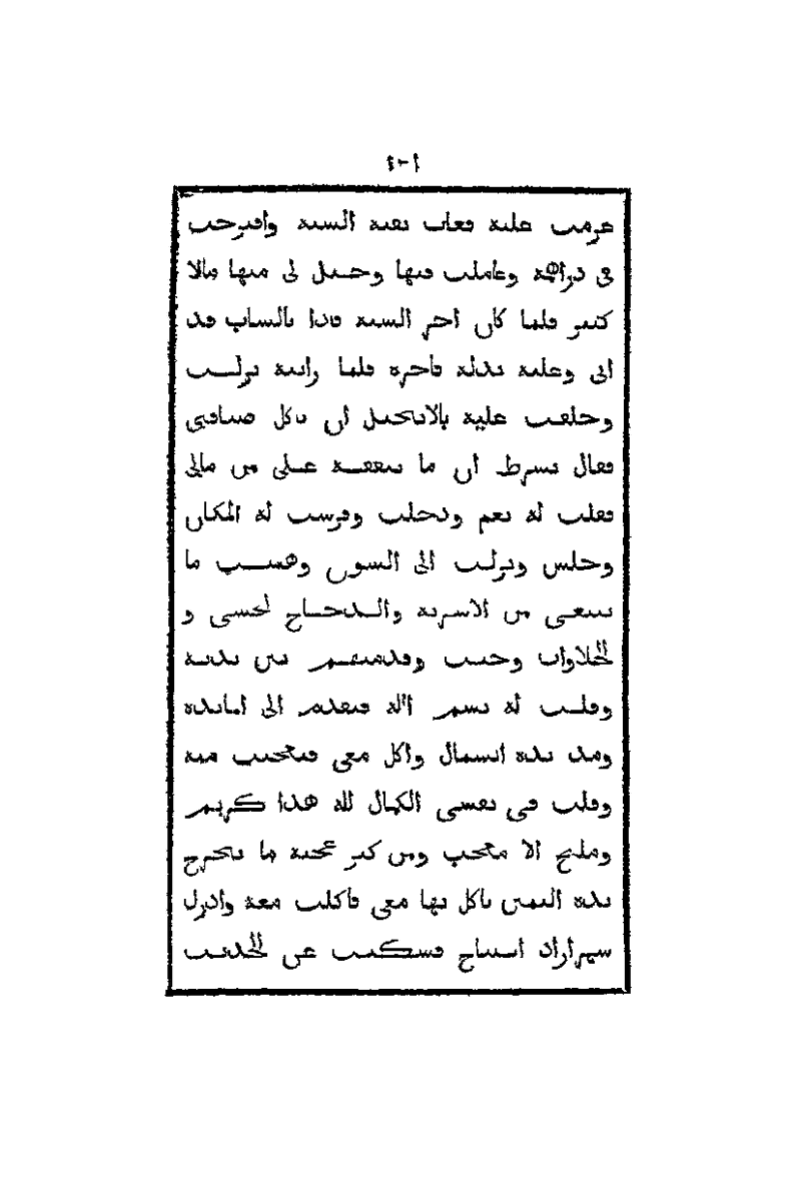 ٤٠١
عزمت عليه فغاب بقية السنة وافترحت
في دراهمه وعاملت فيها وحصل لي منها مالا
كثير فلما كان اخر السنة فاذا بالشاب قد
اتى وعليه بدلة فاخره فلما رايته نزلت
وحلفت عليه بالانجيل ان ياكل ضيافتي
فقال بشرط ان ما تنفقه علي من مالي
فقلت له نعم ودخلت وفرشت له المكان
وجلس ونزلت الى السوق وهميت ما
ينبغي من الاشربه والدجاج لمحشي و
الحلاوات وجيت وقدمتهم بين يديه
وقلت له بسم الله فتقدم الى المايده
ومد يده الشمال واكل معي فتعجبت منه
وقلت في نفسي الكمال لله هذا كريم
ومليح الا معجب ومن كبر عجبه ما يخرج
يده اليمين ياكل بها معي فاكلت معه وادرك
شهرازاد الصباح فسكتت عن الحديث